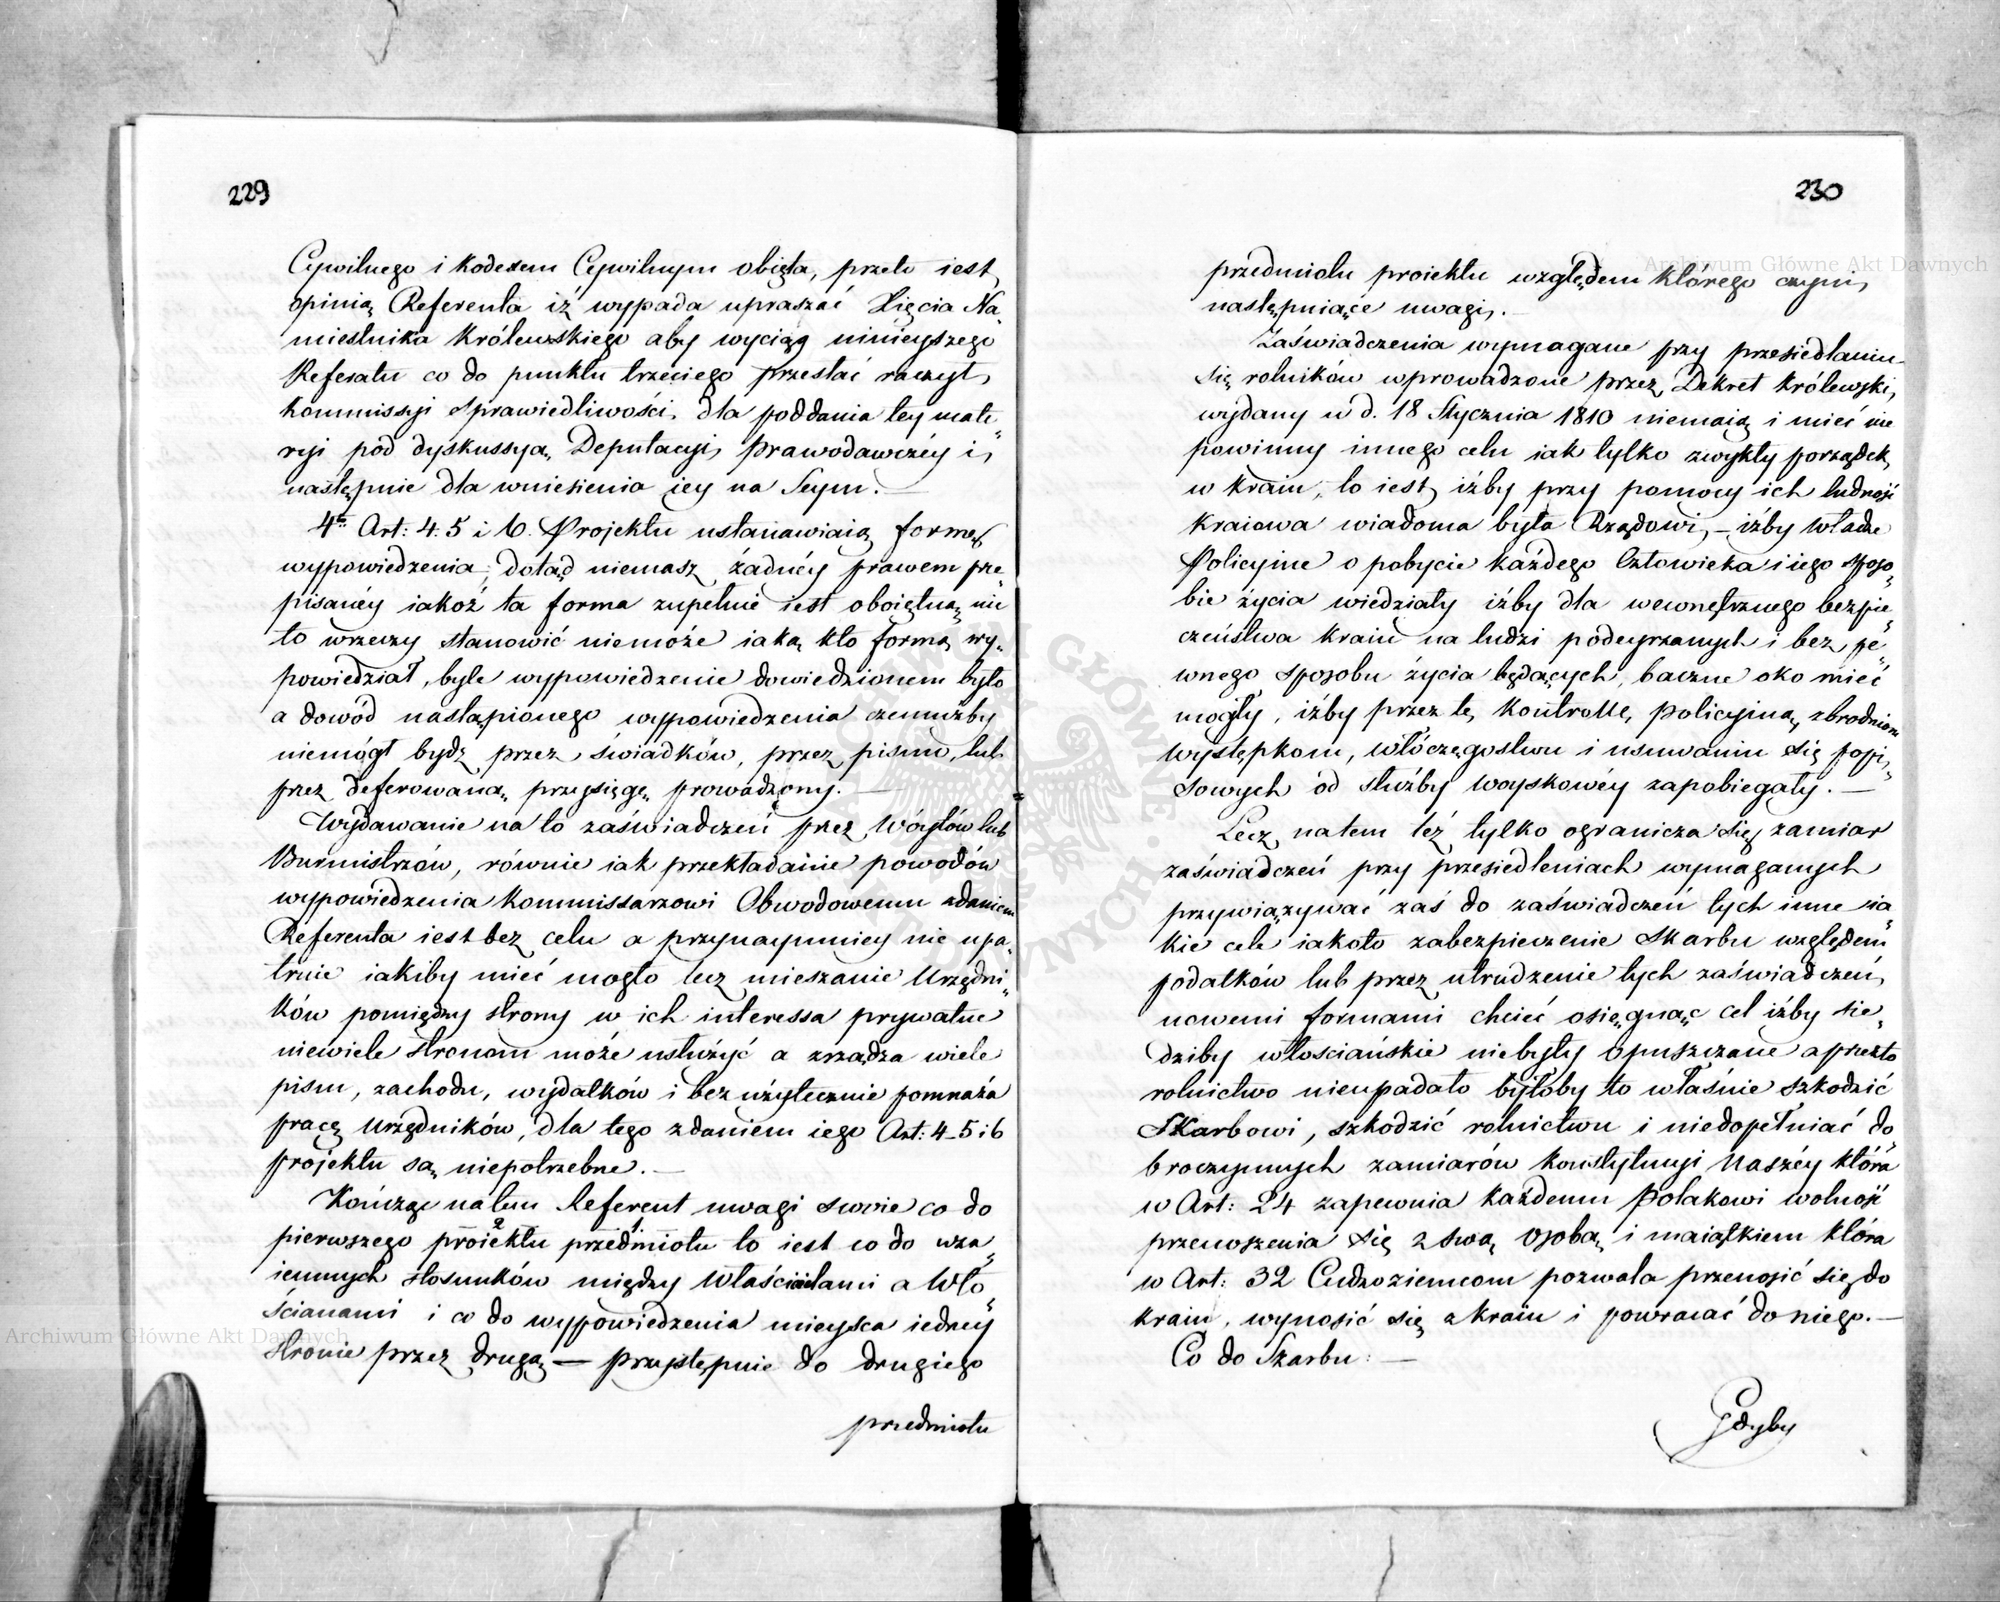 229
Cywilnego i Kodexem Cywilnym obięta, przeto iest
opinią Referenta iż wypada upraszać Xięcia Na„
miestnika Królewskiego aby wyciąg ninieyszego
Referatu co do punktu trzeciego przesłać raczył
Kommissyi Sprawiedliwości, dla poddania tey mate„
ryi pod dyskussyą Deputacyi Prawodawczéy i
następnie dla wniesienia iey na Seym. —
4te Art: 4. 5 i 6. Projektu ustanawiaią formę
wypowiedzenia; dotąd niemasz żadnéy prawem prze„
pisanéy iakoż ta forma zupełnie iest oboiętną nic
to wrzeczy stanowić niemoże iaką kto formą wy„
powiedział, byle wypowiedzenie dowiedzionem było
a dowód nastąpionego wypowiedzenia czemużby
niemógł bydz przez świadków, przez pismo, lub
przez deferowaną przysięgę prowadzony. —
Wydawanie na to zaświadczeń przez Wóytów lub
Burmistrzów, równie iak przekładanie powodów
wypowiedzenia Kommissarzowi Obwodowemu zdaniem
Referenta iest bez celu a przynaymniey nie upa„
truie iakiby mieć mogło lecz mieszanie Urzędni„
ków pomiędzy strony w ich interessa prywatne
niewiele stronom może usłużyć a zrządza wiele
pism, zachodu, wydatków i bezużytecznie pomnaża
pracę Urzędników, dla tego zdaniem iego Art: 4_5 i 6
projektu są niepotrzebne. —
Kończąc na tem Referent uwagi swoie co do
pierwszego proiektu przedmiotu to iest co do wza„
iemnych stosunków między Właścicielami a Wło„
ścianami i co do wypowiedzenia mieysca iedney
stronie przez drugą — Przystępuie do drugiego
przedmiotu
230
przedmiotu proiektu względem którego czyni
następuiące uwagi. —
Zaświadczenia wymagane przy przesiedlaniu
się rolników wprowadzone przez Dekret Królewski,
wydany w d. 18 Stycznia 1810 niemaią i mieć nie
powinny innego celu iak tylko zwykły porządek
w kraiu, to iest, iżby przy pomocy ich ludność
Kraiowa wiadoma była Rządowi, — iżby Władze
Policyine o pobycie każdego Człowieka i iego sposo„
bie życia wiedziały iżby dla wewnętrznego bezpie„
czeństwa Kraiu na ludzi podeyrzanych i bez pe„
wnego sposobu życia będących, baczne oko mieć
mogły, iżby przez tę Kontrollę policyiną zbrodniom
występkom, włóczęgostwu i usuwaniu się popi„
sowych od służby woyskowéy zapobiegały. —
Lecz natem też tylko ogranicza się zamiar
zaświadczeń przy przesiedleniach wymaganych
przywiązywać zaś do zaświadczeń tych inne ia„
kie cele iakoto zabezpieczenie Skarbu względem
podatków lub przez utrudzenie tych zaświadczeń
nowemi formami chcieć osięgnąć cel iżby sie„
dziby włościańskie niebyły opuszczane a przeto
rolnictwo nieupadało byłoby to właśnie szkodzić
Skarbowi, szkodzić rolnictwu i niedopełniać do„
broczynnych zamiarów Konstytucyi Naszéy która
w Art: 24 zapewnia każdemu Polakowi wolność
przenoszenia się z swą osobą i maiątkiem która
w Art: 32 Cudzoziemcom pozwala przenosić się do
kraiu, wynosić się z kraiu i powracać do niego. —
Co do Skarbu: —
Gdyby
Archiwum Główne Akt Dawnych
Archiwum Główne Akt Dawnych